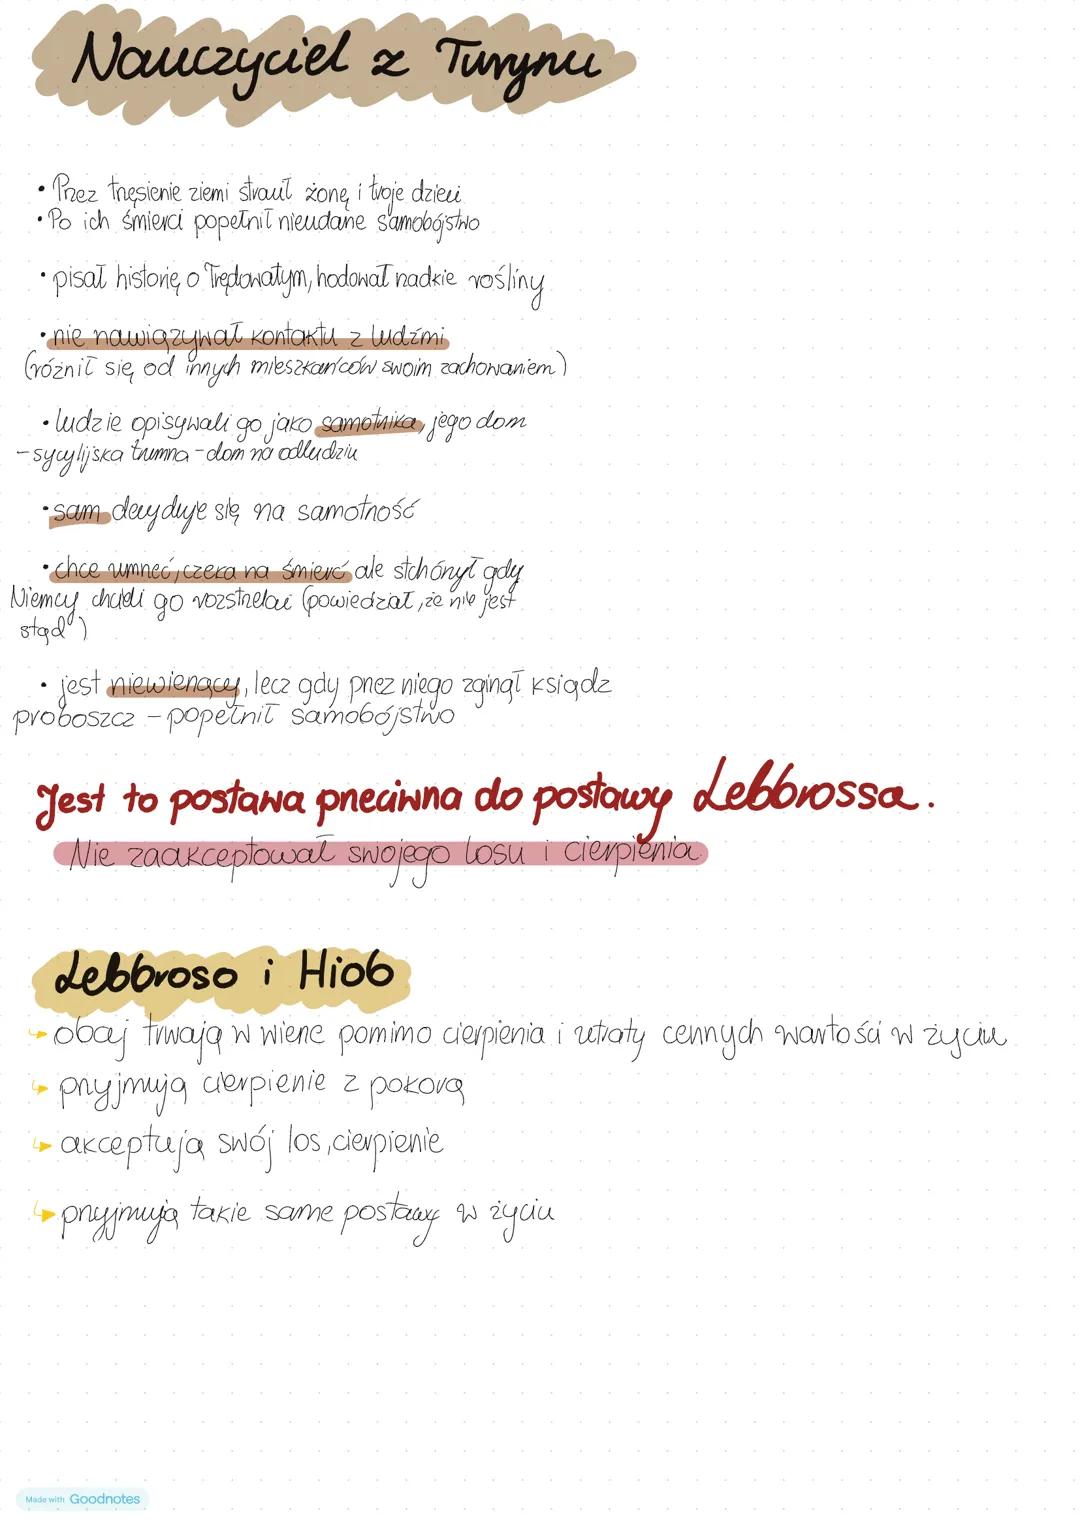 Nauczyciel z Turynu
• Przez trzęsienie ziemi stracił żonę i troje dzieci
• Po ich śmierci popełnił nieudane samobójstwo
• pisał historię o Trędowatym, hodował rzadkie rośliny
• nie nawiązywał kontaktu z ludźmi
(różnił się od innych mieszkańców swoim zachowaniem)
• ludzie opisywali go jako samotnika, jego dom
- sycylijska trumna - dom na odludziu
• sam decyduje się na samotność
• chce umrzeć, czeka na śmierć ale stchórzył gdy
Niemcy chcieli go rozstrzelać (powiedział, że nie jest
stąd")
• jest niewierzący, lecz gdy przez niego zginął ksiądz
proboszcz - popełnił samobójstwo
Jest to postawa przeciwna do postawy Lebbrossa.
Nie zaakceptował swojego losu i cierpienia
Lebbroso i Hiob
obaj trwają w wierze pomimo cierpienia i utraty cennych wartości w życiu
przyjmują cierpienie z pokorą
akceptują swój los, cierpienie
przyjmują takie same postawy w życiu
Made with Goodnotes